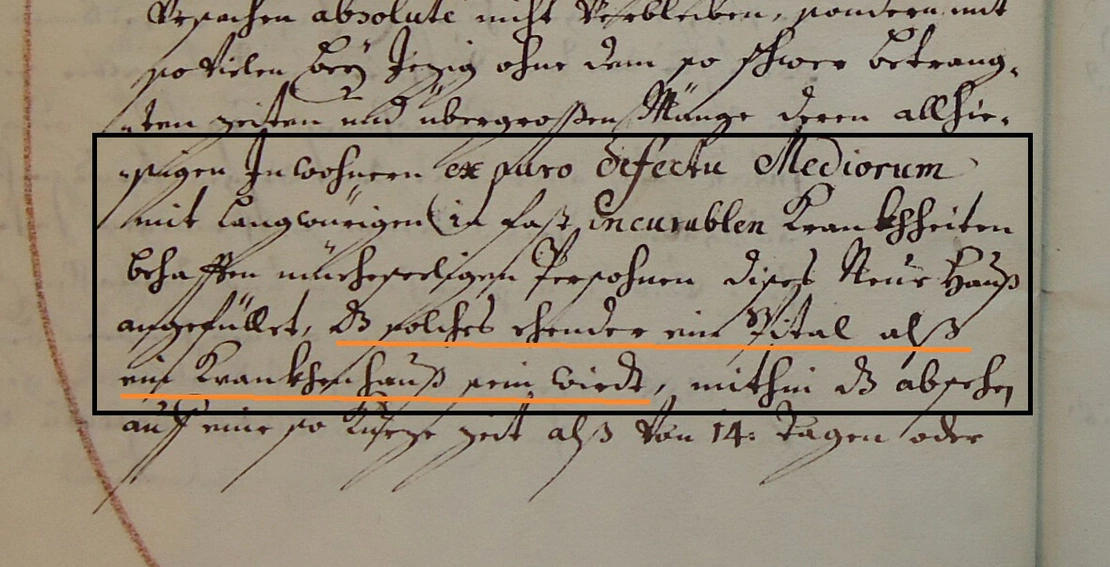 Ursachen absolute nicht Verbleiben, sondern mit
so Vielen beÿ Jezig ohne dem so schwer betrang-
-ten zeiten und übergrossen Mänge deren allhie-
-sigen Inwohnern ex puro defectu Mediorum
mit langwürigen in fast incurablen Krankhheiten
behafften müeheseeligen Persohnen dises Neue Hauß
angefüllet, dz solches ehender ein Spital alß
ein Krankhenhauß sein wirdt, mithin dz absehen
auff eine so Kurze zeit alß Von 14: Tagen oder